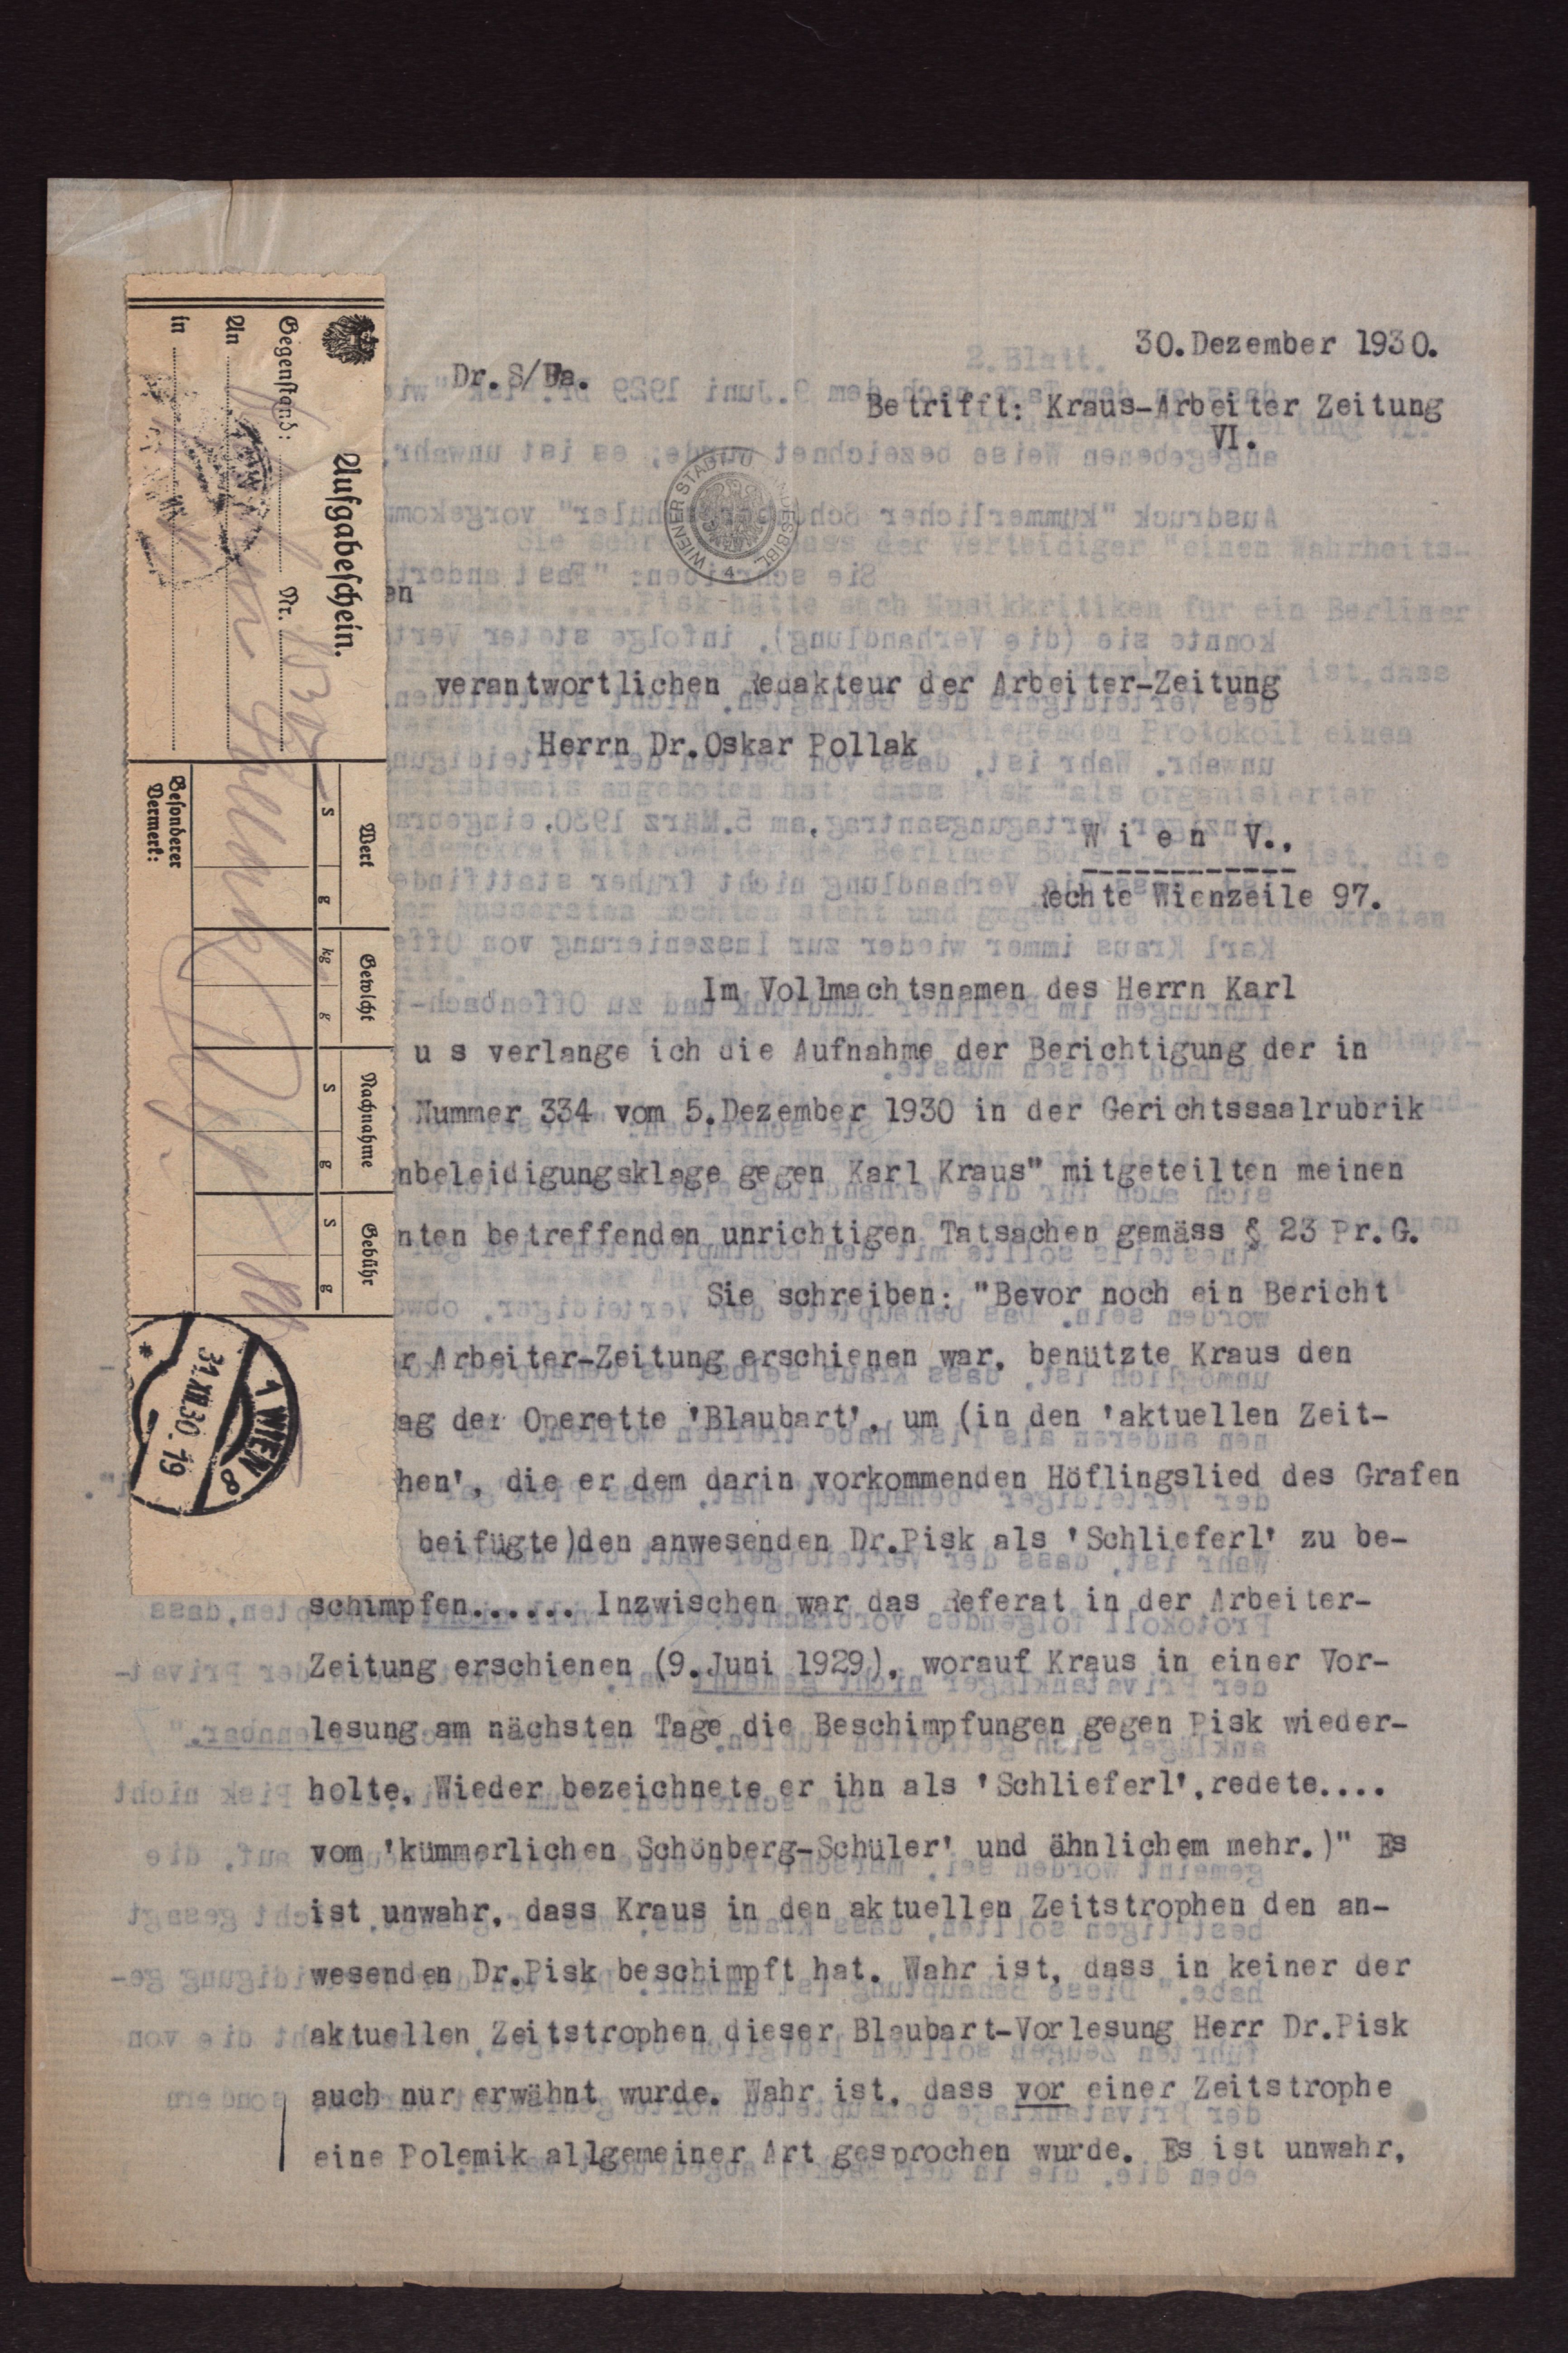 30.Dezember 1930.
Dr.S/Fa.
Betrifft: Kraus-Arbeiter Zeitung
VI.
WIENER STADT U
DESBIBL.
4
en
verantwortlichen Redakteur der Arbeiter-Zeitung
Herrn Dr.Oskar Pollak
W i e n V.,
Rechte Wienzeile 97.
Im Vollmachtsnamen des Herrn Karl
u s verlange ich die Aufnahme der Berichtigung der in
Nummer 334 vom 5.Dezember 1930 in der Gerichtssaalrubrik
nbeleidigungsklage gegen Karl Kraus" mitgeteilten meinen
nten betreffenden unrichtigen Tatsachen gemäss § 23 Pr.G.
Sie schreiben: "Bevor noch ein Bericht
r Arbeiter-Zeitung erschienen war, benützte Kraus den
ag der Operette 'Blaubart', um (in den 'aktuellen Zeit-
hen', die er dem darin vorkommenden Höflingslied des Grafen
beifügte)den anwesenden Dr.Pisk als 'Schlieferl' zu be-
schimpfen...... Inzwischen war das Referat in der Arbeiter-
Zeitung erschienen (9.Juni 1929), worauf Kraus in einer Vor-
lesung am nächsten Tage die Beschimpfungen gegen Pisk wieder-
holte. Wieder bezeichnete er ihn als 'Schlieferl',redete....
vom 'kümmerlichen Schönberg-Schüler' und ähnlichem mehr.)" Es
ist unwahr, dass Kraus in den aktuellen Zeitstrophen den an-
wesenden Dr.Pisk beschimpft hat. Wahr ist, dass in keiner der
aktuellen Zeitstrophen dieser Blaubart-Vorlesung Herr Dr.Pisk
auch nur erwähnt wurde. Wahr ist, dass vor einer Zeitstrophe
eine Polemik allgemeiner Art gesprochen wurde. Es ist unwahr,
Aufgabeschein.
Gegenstand:
Nr.
An
Pollak
in
Wert
S g
Gewicht
kg g
Nachnahme
S g
Gebühr
S g
Besonderer
Vermerk:
1 WIEN 8
31.XII.30.19